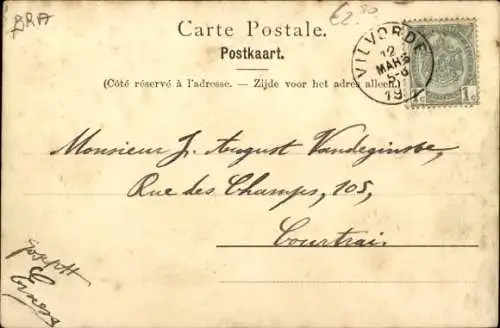 BRA
€2.80
Carte Postale.
Postkaart.
(Côté réservé à l'adresse. — Zijde voor het adres alleen.)
VILVORDE
12
MARS
19
1c 1c
Monsieur J. August Vandeginste,
Rue des Champs, 105,
Courtrai.